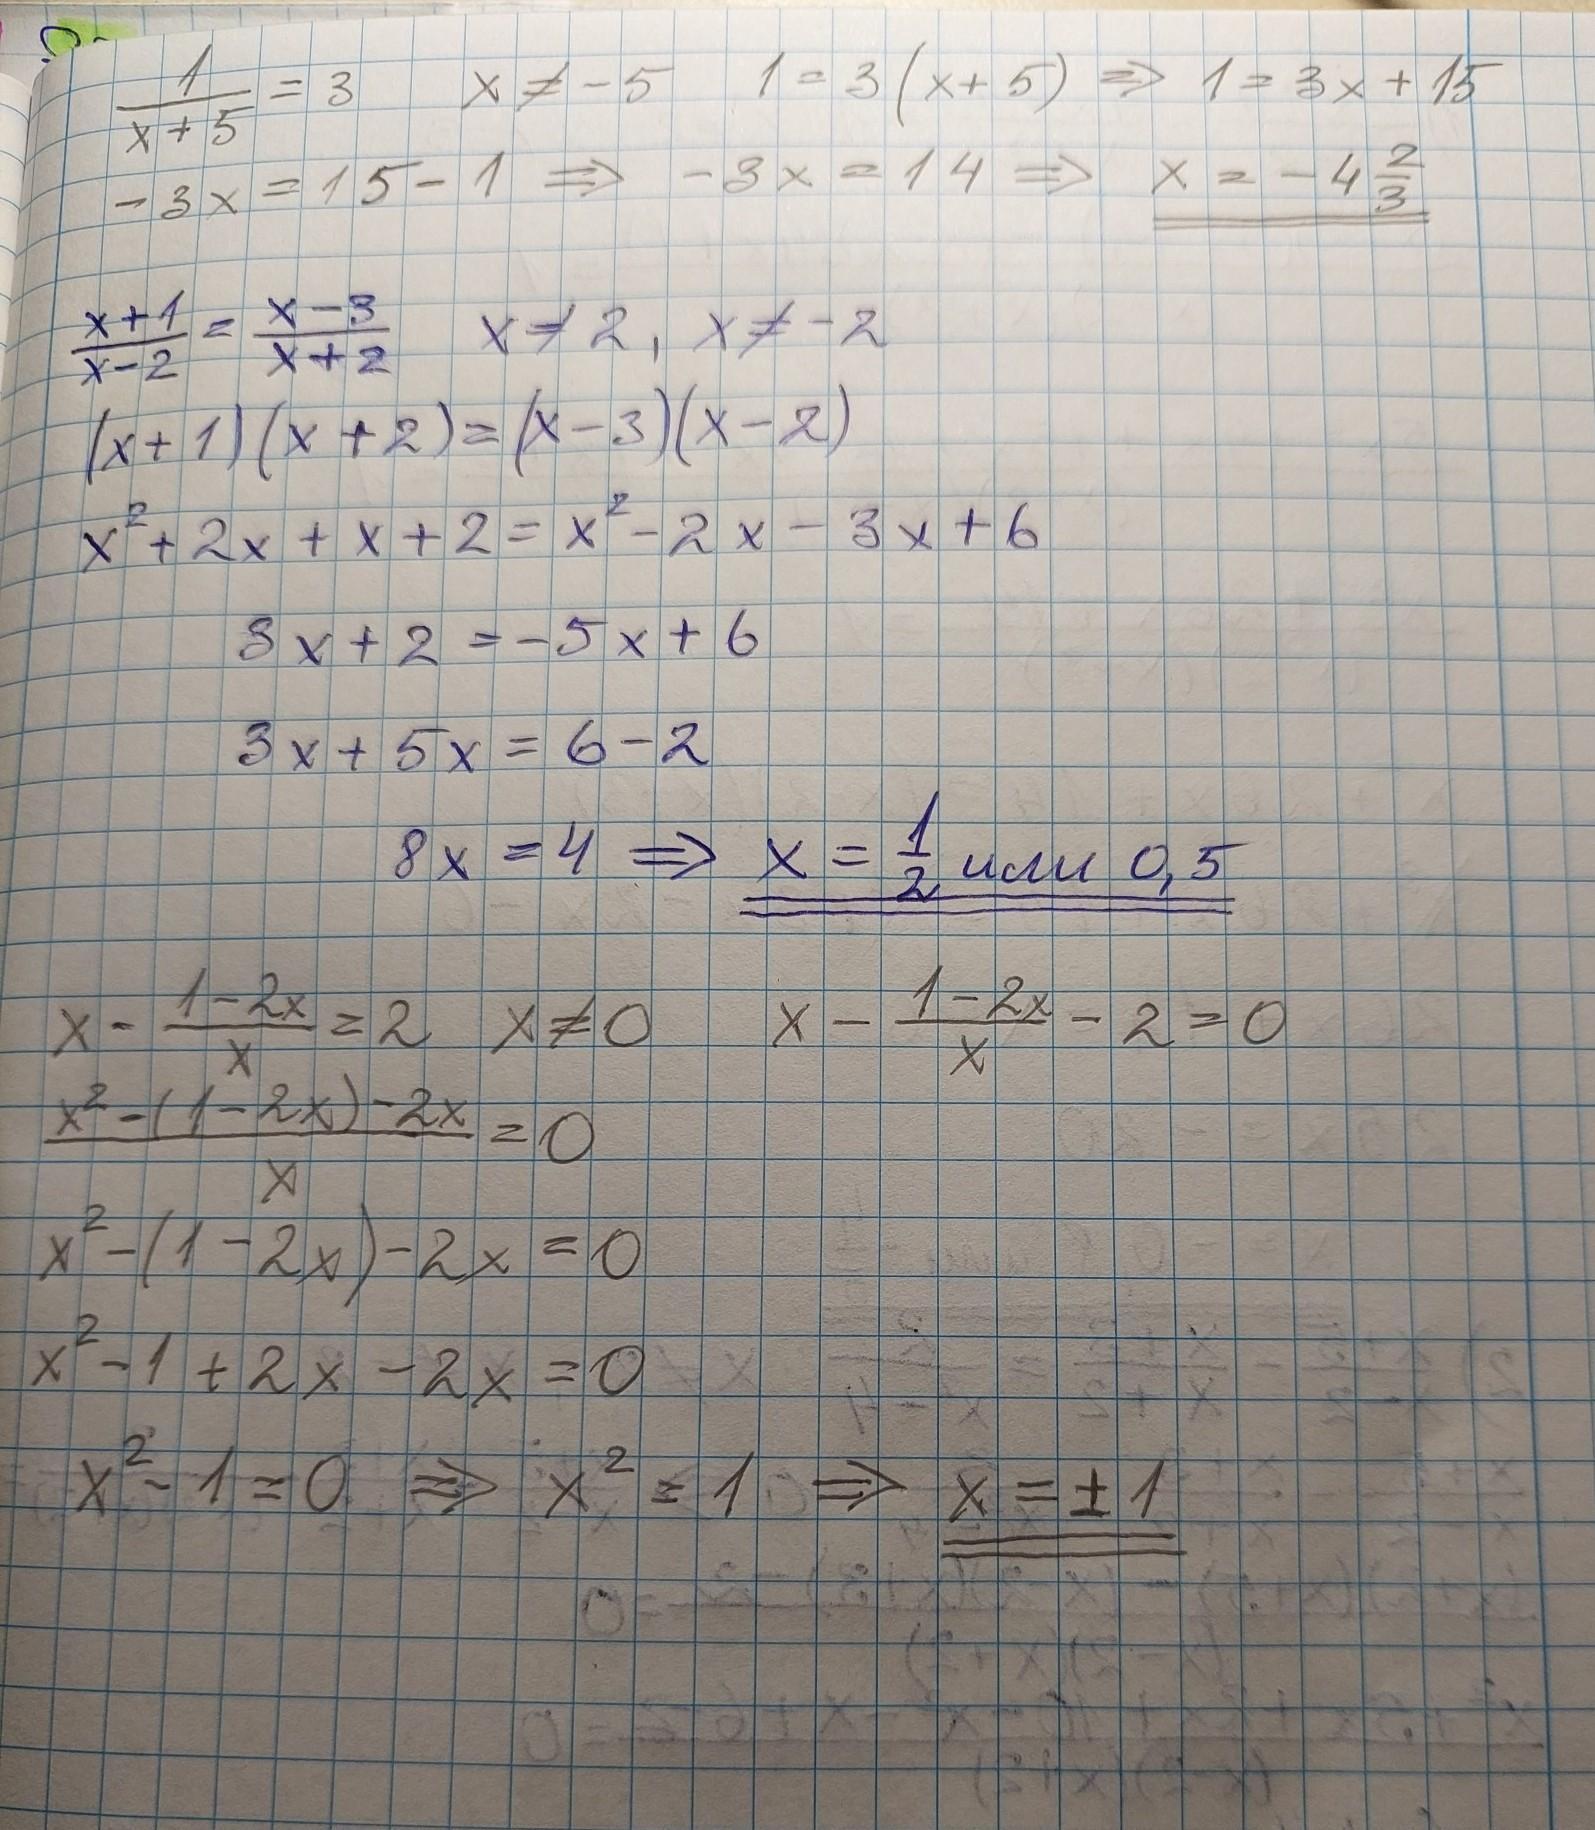 1/(x+5) = 3   x ≠ -5   1 = 3(x+5) ⇒ 1 = 3x + 15
-3x = 15 - 1 ⇒ -3x = 14 ⇒ x = -4 2/3
(x+1)/(x-2) = (x-3)/(x+2)   x ≠ 2, x ≠ -2
(x+1)(x+2) = (x-3)(x-2)
x² + 2x + x + 2 = x² - 2x - 3x + 6
3x + 2 = -5x + 6
3x + 5x = 6 - 2
8x = 4 ⇒ x = 1/2 или 0,5
x - (1-2x)/x = 2   x ≠ 0   x - (1-2x)/x - 2 = 0
(x² - (1-2x) - 2x)/x = 0
x² - (1-2x) - 2x = 0
x² - 1 + 2x - 2x = 0
x² - 1 = 0 ⇒ x² = 1 ⇒ x = ±1